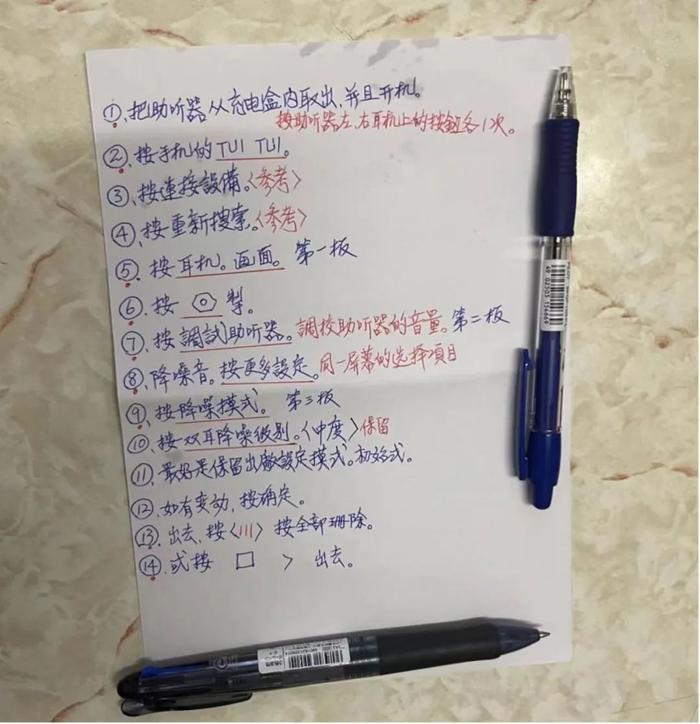 ①、把助听器从充电盒内取出、并且开机。
按助听器左、右耳机上的按鈕各1次。
②、按手机的TUI TUI。
③、按連接設備。〈参考〉
④、按重新搜索。〈参考〉
⑤、按耳机。画面。 第一板
⑥、按 掣。
⑦、按調試助听器。調校助听器的音量。第二板
⑧、降噪音。按更多設定。同一屏幕的选择項目
⑨、按降噪摸式。 第三板
⑩、按双耳降噪级别。〈中度〉保留
⑪、最好是保留出廠設定摸式。初始式。
⑫、如有变动，按确定。
⑬、出去、按〈III〉按全部珊除。
⑭、或按 □ > 出去。